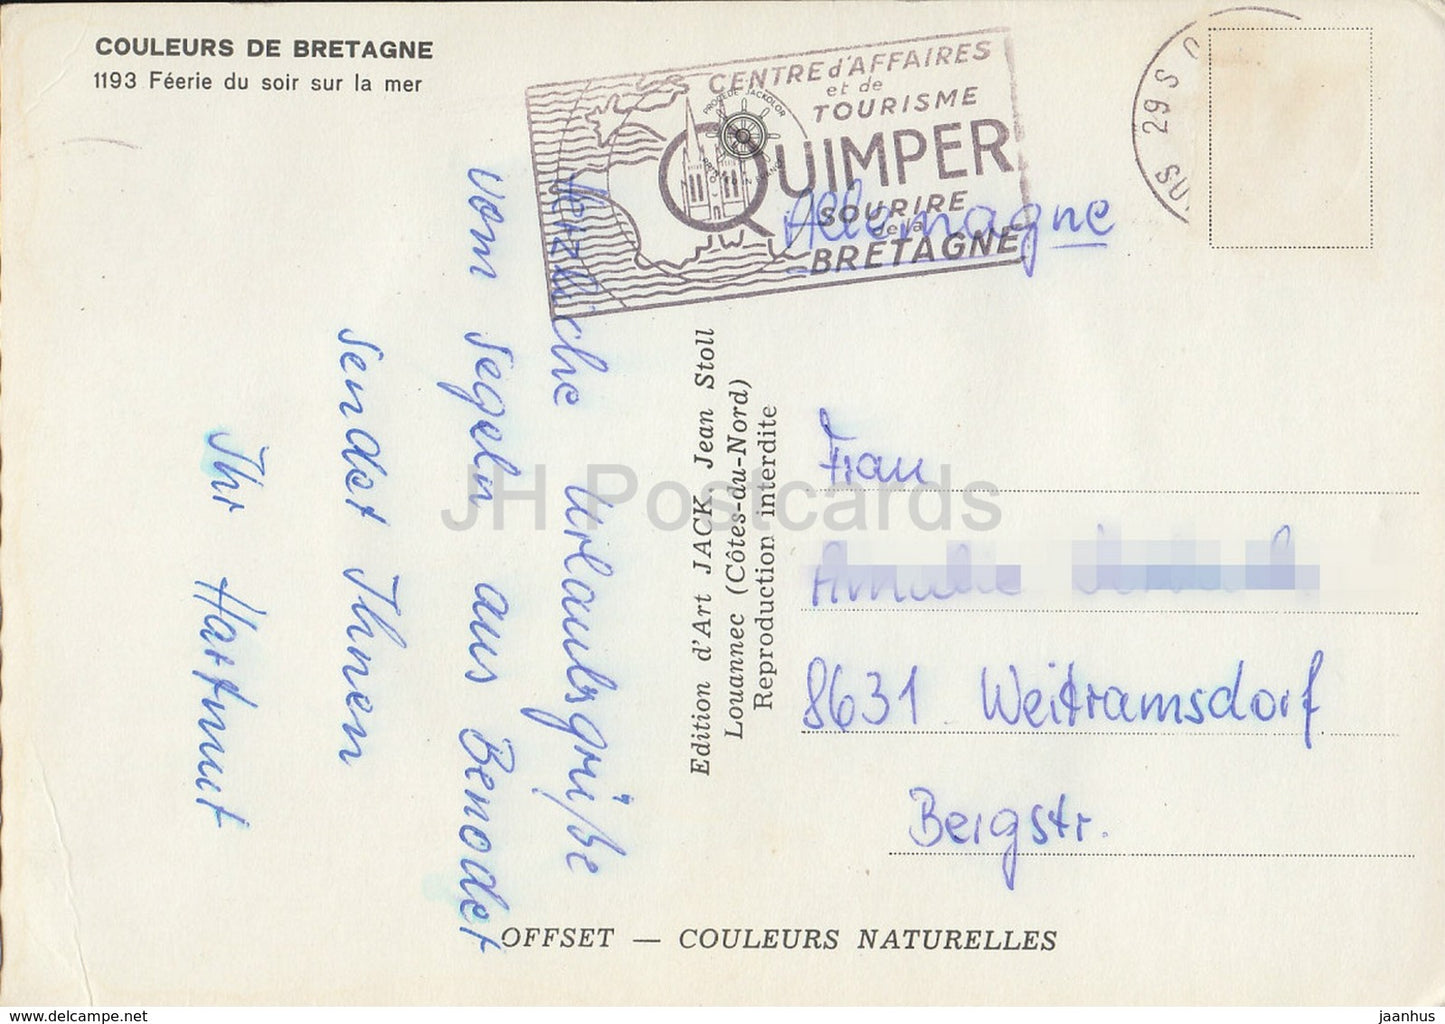 COULEURS DE BRETAGNE
1193 Féerie du soir sur la mer
CENTRE d'AFFAIRES
et de
TOURISME
QUIMPER
SOURIRE
de la
BRETAGNE
PROCEDE JACKOLOR
29 S
Allemagne
Herzliche Urlaubsgrüße
vom Segeln aus Benodet
sendet Ihnen
Ihr Hartmut
Edition d'Art JACK Jean Stoll
Louannec (Côtes-du-Nord)
Reproduction interdite
Frau
8631 Weitramsdorf
Bergstr.
OFFSET — COULEURS NATURELLES
JH Postcards
© www.delcampe.net
jaanhus